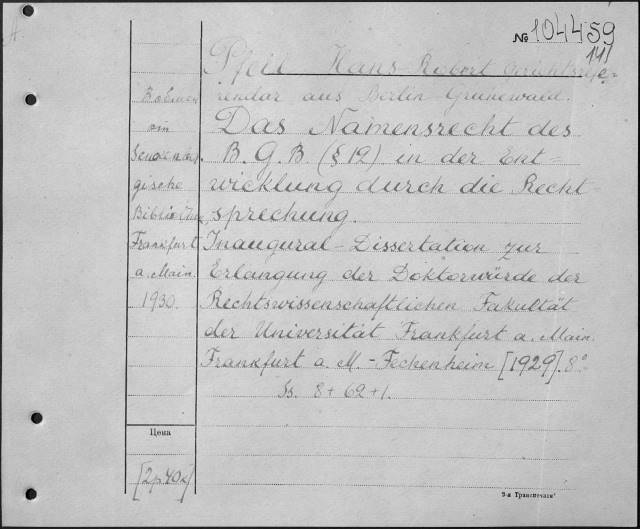 № 104459
141
Pfeil Hans Robert Gerichtsrefe-
rendar aus Berlin Grunewald.
Das Namensrecht des
B. G. B. (§ 12) in der Ent-
wicklung durch die Recht-
sprechung.
Inaugural-Dissertation zur
Erlangung der Doktorwürde der
Rechtswissenschaftlichen Fakultät
der Universität Frankfurt a. Main.
Frankfurt a. M. - Fechenheim [1929]. 8°
Ss. 8+62+1.
gische
Frankfurt
a. Main.
1930.
Цена
[2р.40к]
9-я Транспечать